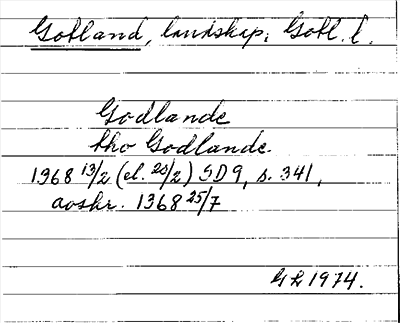 Gotland, landskap. Gotl. l.
Godlande
tho Godlande.
1368 13/2 (el. 20/2) SD9, s. 341,
avskr. 1368 25/7
GL 1974.